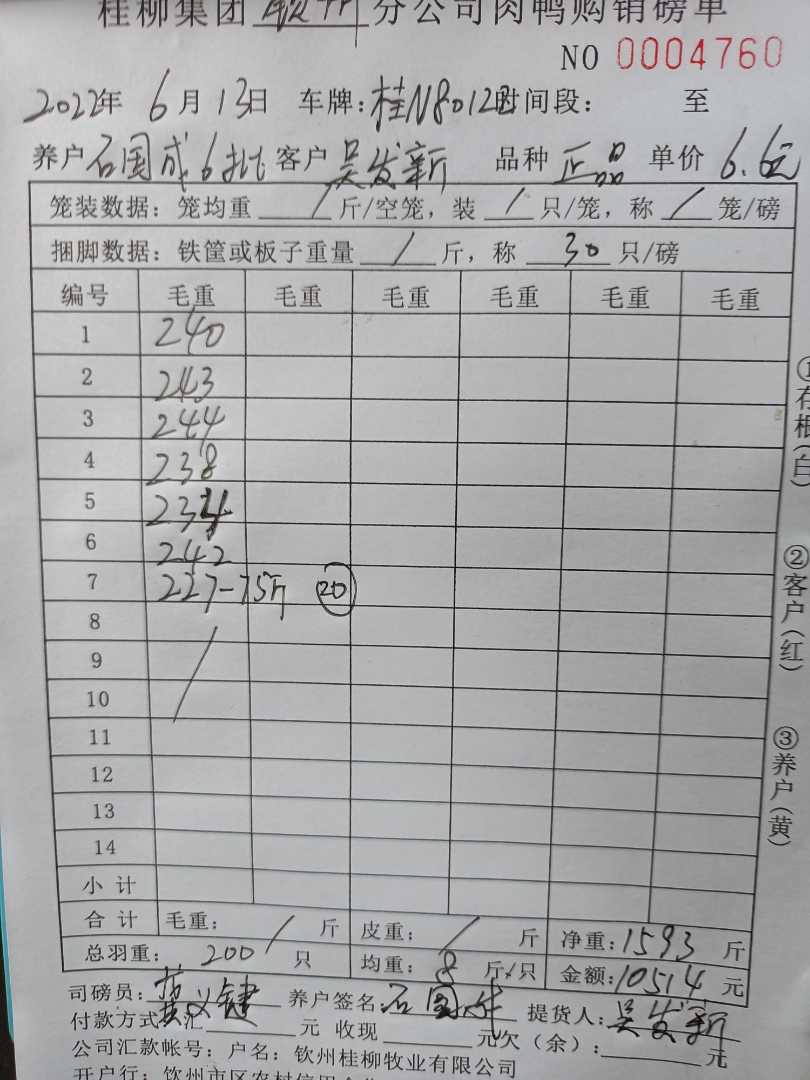 桂柳集团 钦州 分公司肉鸭购销磅单
NO 0004760
2022年 6月13日 车牌:桂N8012 时间段: 至
养户 石国成6批 客户 吴发新 品种 正品 单价 6.6元
笼装数据: 笼均重 / 斤/空笼, 装 / 只/笼, 称 / 笼/磅
捆脚数据: 铁筐或板子重量 / 斤, 称 30 只/磅
编号 毛重 毛重 毛重 毛重 毛重 毛重
1 240
2 243
3 244
4 238
5 234
6 242
7 227-75斤 20
8 /
9
10
11
12
13
14
小计
合计 毛重: / 斤 皮重: / 斤 净重:1593 斤
总羽重: 200 只 均重: 8 斤/只 金额:10514 元
司磅员: 义键 养户签名:石国成 提货人:吴发新
付款方式: 汇 元 收现 元欠(余): 元
公司汇款帐号: 户名: 钦州桂柳牧业有限公司
开户行: 钦州市区农村信用合
①存根(白)
②客户(红)
③养户(黄)